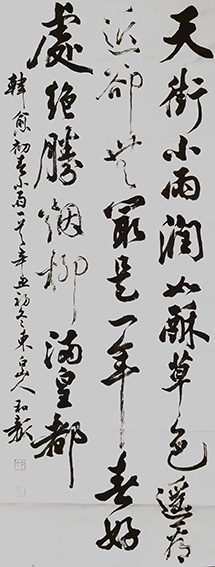 天街小雨润如酥草色遥看
近却无最是一年春好
处绝胜烟柳满皇都
韩愈初春小雨一首辛丑初冬东白山人和新